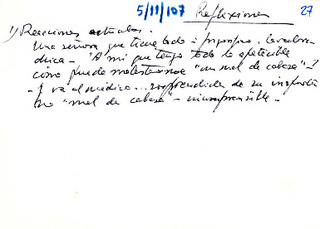 5/11/107 Reflexiones 27
1) Reacciones actuales.
Una señora que tiene todo
dica - "A mi que tengo todo lo apetecible
cómo puede molestarme "un mal de cabeza" -
- Y va al médico... sorprendida de su
"mal de cabeza" - incomprensible -